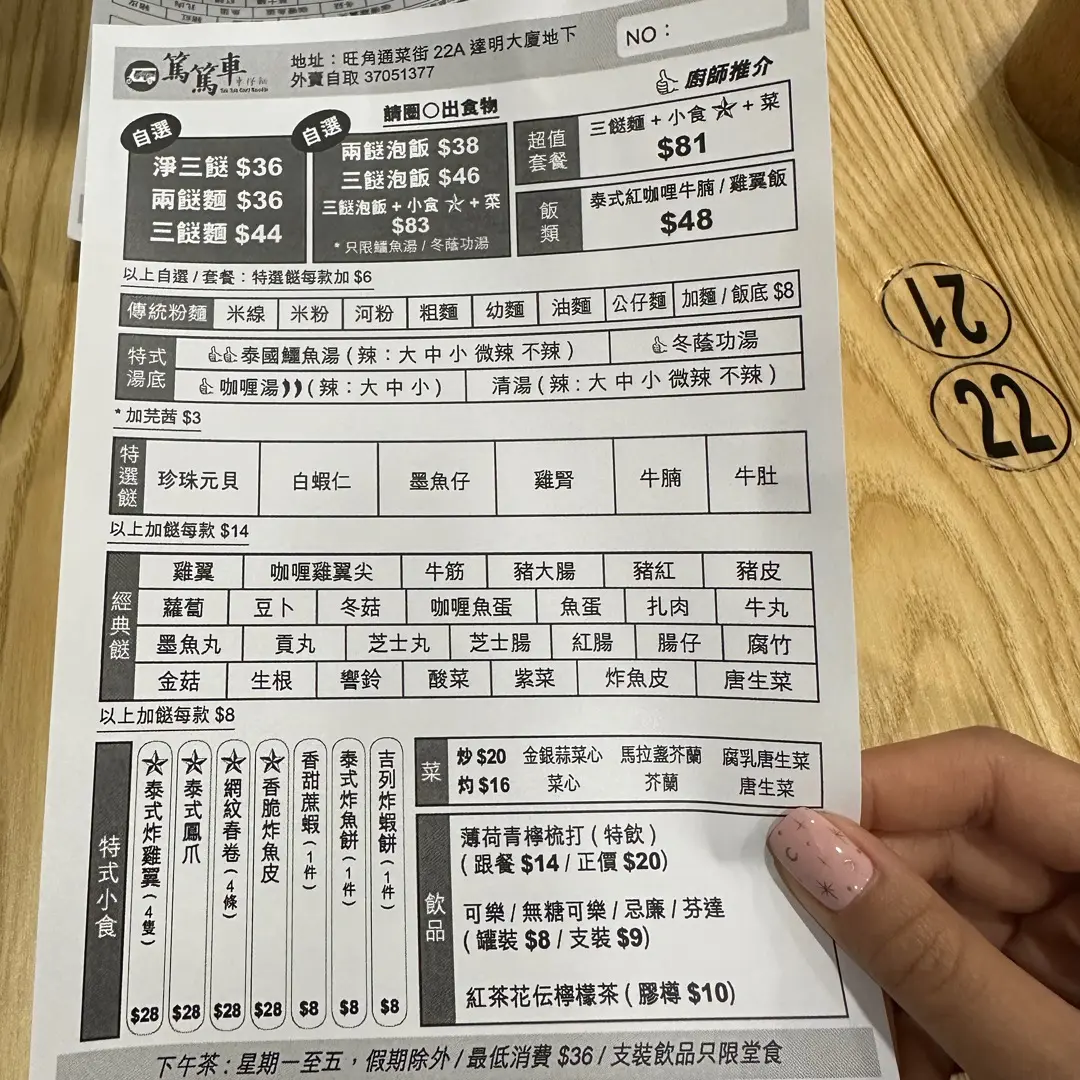 篤篤車
車仔麵
地址：旺角通菜街 22A 達明大廈地下
外賣自取 37051377
NO：
請圈○出食物
廚師推介
自選
淨三餸 $36
兩餸麵 $36
三餸麵 $44
自選
兩餸泡飯 $38
三餸泡飯 $46
三餸泡飯 + 小食 ★ + 菜
$83
* 只限鱷魚湯 / 冬蔭功湯
超值套餐
三餸麵 + 小食 ★ + 菜
$81
飯類
泰式紅咖哩牛腩 / 雞翼飯
$48
以上自選 / 套餐：特選餸每款加 $6
傳統粉麵 米線 米粉 河粉 粗麵 幼麵 油麵 公仔麵 加麵 / 飯底 $8
特式湯底
泰國鱷魚湯 ( 辣：大 中 小 微辣 不辣 ) 冬蔭功湯
咖喱湯 ( 辣：大 中 小 ) 清湯 ( 辣：大 中 小 微辣 不辣 )
* 加芫茜 $3
特選餸 珍珠元貝 白蝦仁 墨魚仔 雞腎 牛腩 牛肚
以上加餸每款 $14
經典餸
雞翼 咖喱雞翼尖 牛筋 豬大腸 豬紅 豬皮
蘿蔔 豆卜 冬菇 咖喱魚蛋 魚蛋 扎肉 牛丸
墨魚丸 貢丸 芝士丸 芝士腸 紅腸 腸仔 腐竹
金菇 生根 響鈴 酸菜 紫菜 炸魚皮 唐生菜
以上加餸每款 $8
特式小食
★泰式炸雞翼 (4隻) $28
★泰式鳳爪 $28
★網紋春卷 (4條) $28
★香脆炸魚皮 $28
香甜蔗蝦 (1件) $8
泰式炸魚餅 (1件) $8
吉列炸蝦餅 (1件) $8
菜
炒 $20 金銀蒜菜心 馬拉盞芥蘭 腐乳唐生菜
灼 $16 菜心 芥蘭 唐生菜
飲品
薄荷青檸梳打 ( 特飲 )
( 跟餐 $14 / 正價 $20)
可樂 / 無糖可樂 / 忌廉 / 芬達
( 罐裝 $8 / 支裝 $9)
紅茶花伝檸檬茶 ( 膠樽 $10)
下午茶 : 星期一至五，假期除外 / 最低消費 $36 / 支裝飲品只限堂食
21
22